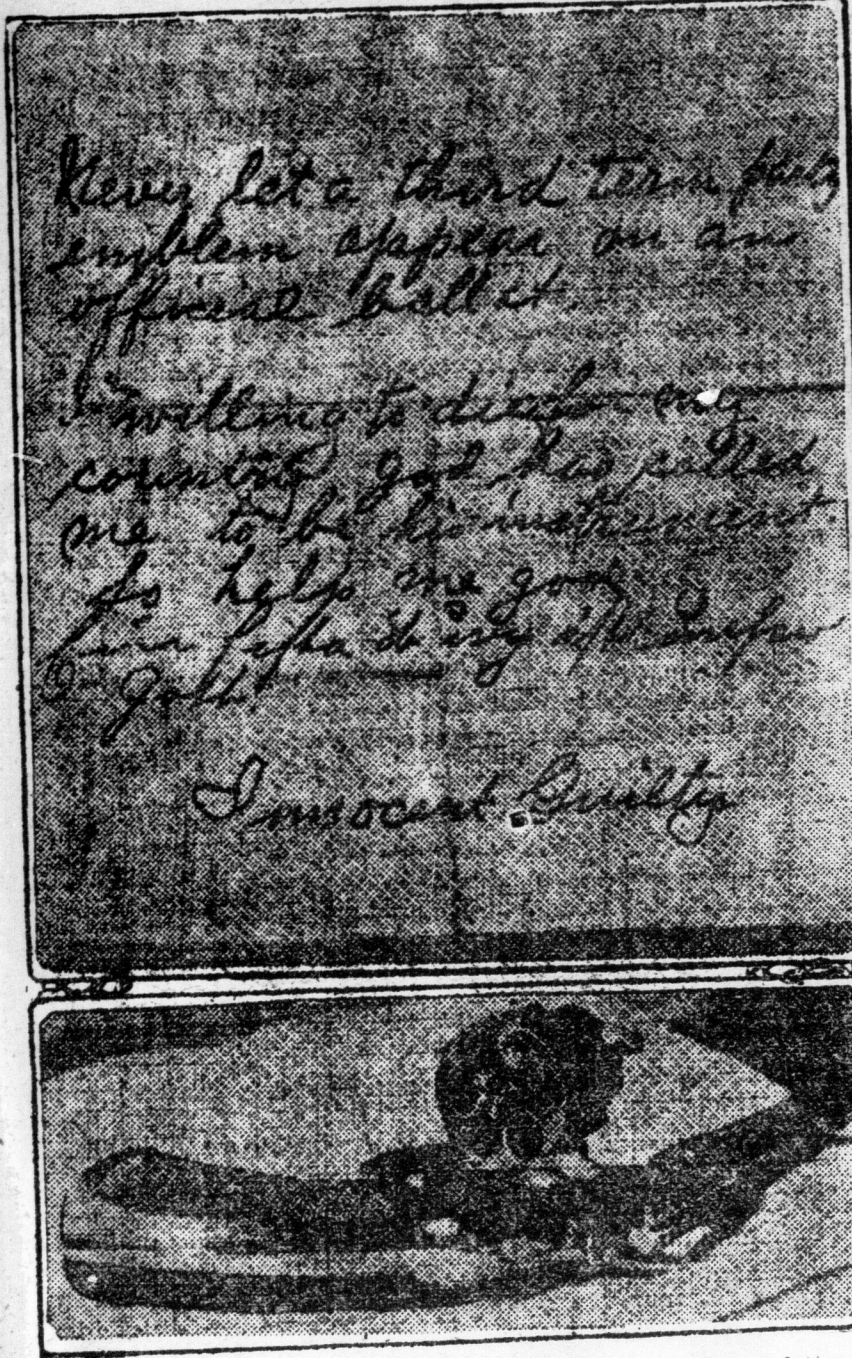 Never let a third term party
emblem appear on an
official ballot.
I willing to die for my
country god has called
me to be his instrument
So help me god
Innocent Guilty